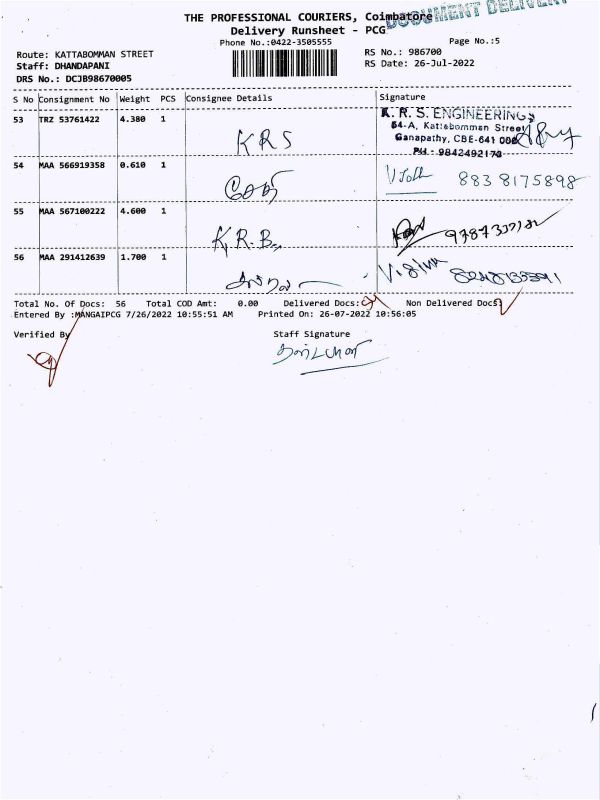 THE PROFESSIONAL COURIERS, Coimbatore
DOCUMENT DELIVERY
Delivery Runsheet - PCG
Phone No.:0422-3505555
Page No.:5
Route: KATTABOMMAN STREET
RS No.: 986700
Staff: DHANDAPANI
RS Date: 26-Jul-2022
DRS No.: DCJB98670005
S No Consignment No Weight PCS Consignee Details Signature
53 TRZ 53761422 4.380 1 KRS
K. R. S. ENGINEERING
54-A, Kattabomman Street
Ganapathy, CBE-641 006
PH : 9842492173
54 MAA 566919358 0.610 1
883 8175898
55 MAA 567100222 4.600 1 K.R.B.
56 MAA 291412639 1.700 1
Total No. Of Docs: 56 Total COD Amt: 0.00 Delivered Docs: Non Delivered Docs:
Entered By :MANGAIPCG 7/26/2022 10:55:51 AM Printed On: 26-07-2022 10:56:05
Verified By Staff Signature